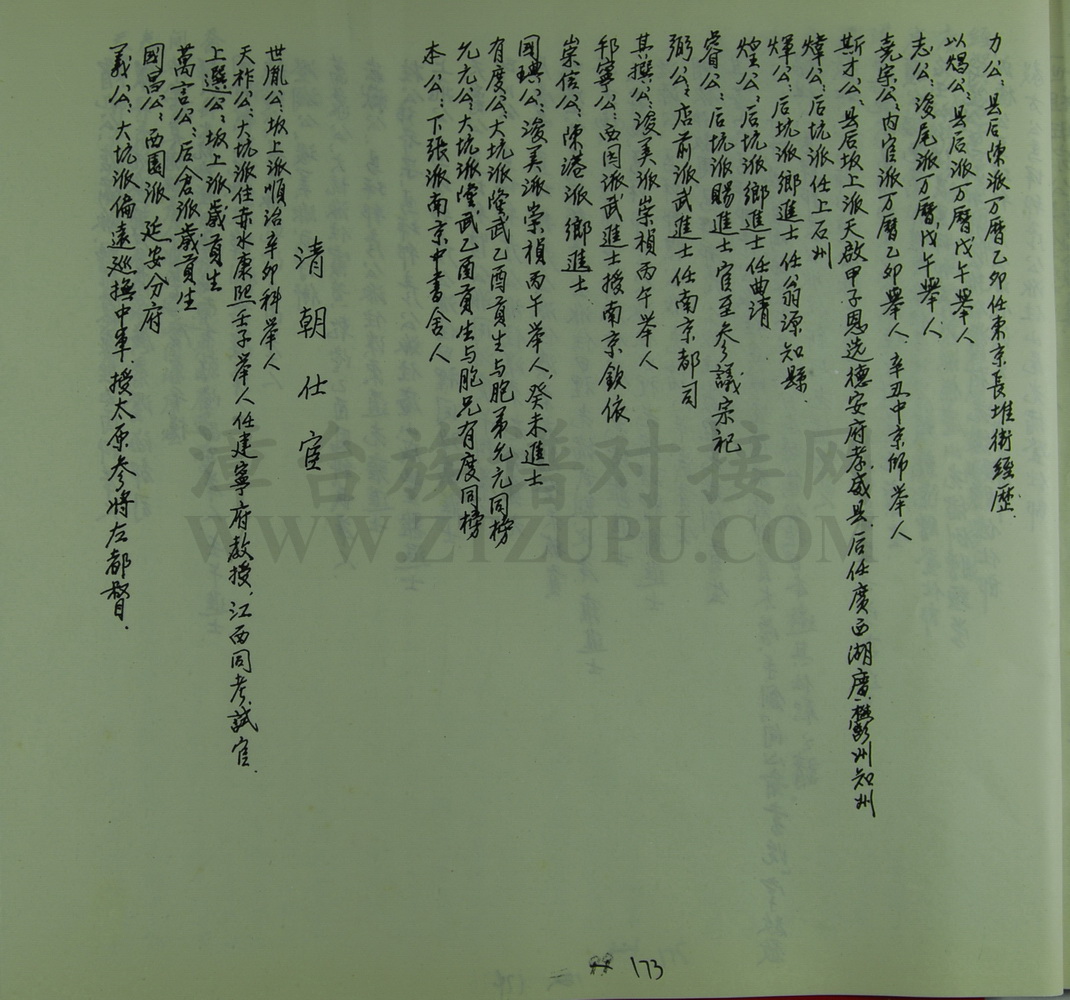 力公：县后陳派万曆乙卯任東京長堆街經歷.
以焻公：县后派万曆戊午舉人
志公：浚尾派万曆戊午舉人
堯宗公：内官派万曆乙卯舉人.辛丑中京師舉人
斯才公：县后坂上派天啟甲子恩选德安府孝感县.后任廣西湖廣欝州知州
煒公：后坑派任上石州
煇公：后坑派鄉進士任翁源知縣.
煌公：后坑派鄉進士任曲清
睿公：后坑派賜進士官至参議宗祀
弼公：店前派武進士任南京都司
其撰公：浚美派崇楨丙午举人
邦寧公：西园派武進士授南京欽依
崇信公：陳港派鄉進士
國琠公：浚美派崇楨丙午举人.癸未進士
有度公：大坑派隆武乙酉貢生与胞弟允元同榜
允元公：大坑派隆武乙酉貢生与胞兄有度同榜
本公：下張派南京中書舍人
清朝仕宦
世胤公：坂上派順治辛卯科举人
天柞公：大坑派住赤水康熙壬子举人任建寧府教授.江西同考試官.
上選公：坂上派歲貢生
萬言公：后倉派歲貢生
國昌公：西園派 延安分府
義公：大坑派偏遠巡撫中軍.授太原参将左都督.
173
泣台族谱对接网
WWW.ZTZUPU.COM